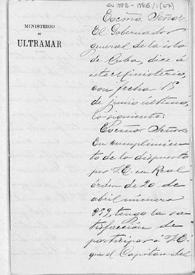 MINISTERIO
DE
ULTRAMAR
Excmo. Señor
El Gobernador
general de la isla
de Cuba, dice á
este Ministerio,
con fecha 15
de Junio último,
lo siguiente:
Excmo Señor:
En cumplimien
to de lo dispuesto
por V.E. en Real
órden de 20 de
abril número
959, tengo la sa
tisfaccion de
participar á V.E.
que el Capitan de